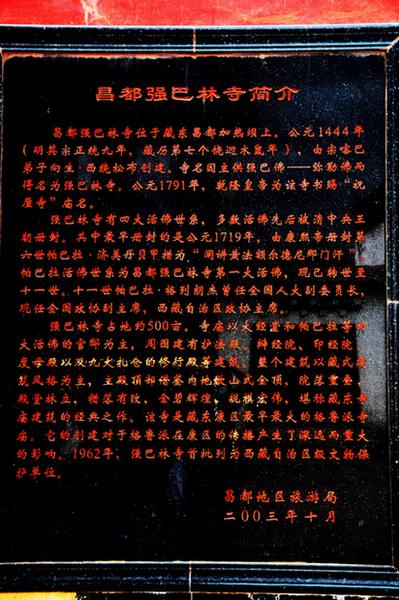 昌都强巴林寺简介
昌都强巴林寺位于藏东昌都加热坝上。公元1444年
（明英宗正统九年，藏历第七个绕迥木鼠年），由宗喀巴
弟子向生·西绕松布创建。寺名因主供强巴佛——弥勒佛而
得名为强巴林寺。公元1791年，乾隆皇帝为该寺书赐“祝
厘寺”庙名。
强巴林寺有四大活佛世系，多数活佛先后被清中央王
朝册封。其中最早册封的是公元1719年，由康熙帝册封第
六世帕巴拉·济美丹贝甲措为“阐讲黄法额尔德尼那门汗”，
帕巴拉活佛世系为昌都强巴林寺第一大活佛，现已转世至
十一世。十一世帕巴拉·格列朗杰曾任全国人大副委员长，
现任全国政协副主席，西藏自治区政协主席。
强巴林寺占地约500亩。寺庙以大经堂和帕巴拉等四
大活佛的官邸为主，周围建有护法殿、辩经院、印经院、
度母殿以及九大扎仓的修行殿等建筑。整个建筑以藏式建
筑风格为主，主殿顶和僧舍内地歇山式金顶，院落重叠，
殿堂林立，错落有致，金碧辉煌，规模宏伟，堪称藏东寺
庙建筑的经典之作。该寺是藏东康区最早最大的格鲁派寺
庙。它的创建对于格鲁派在康区的传播产生了深远而重大
的影响。1962年，强巴林寺首批列为西藏自治区级文物保
护单位。
昌都地区旅游局
二〇〇三年十月